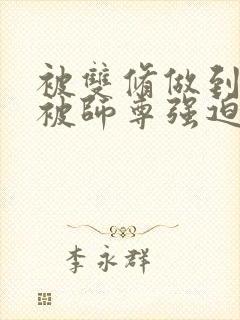 被雙脩做到
被師尊强迫
李永群